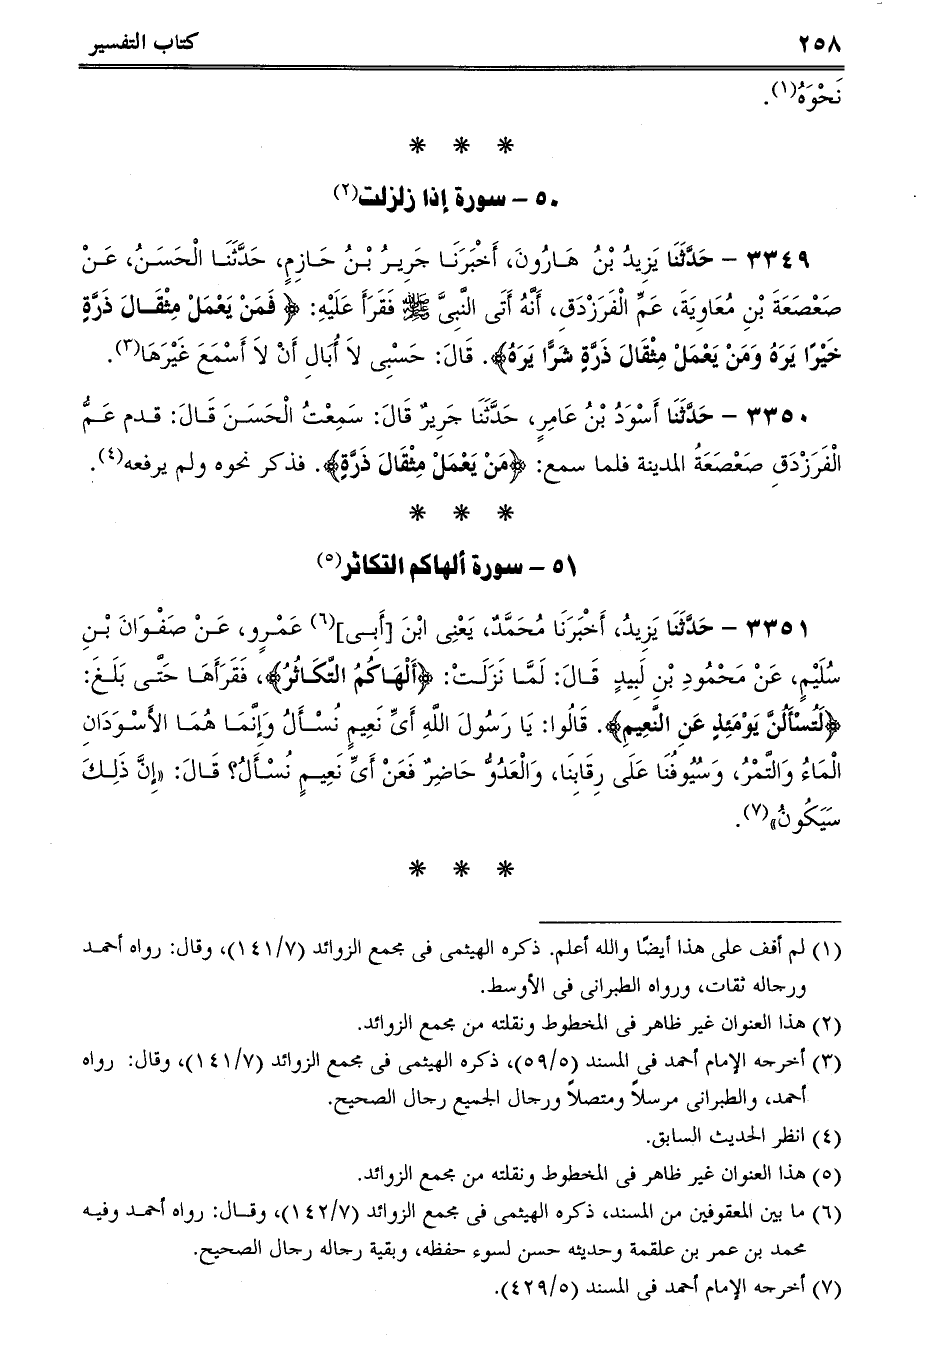 ٢٥٨ كتاب التفسير
نَحْوَهُ(١).
* * *
٥٠ - سورة إذا زلزلت(٢)
٣٣٤٩ - حَدَّثَنَا يَزِيدُ بْنُ هَارُونَ، أَخْبَرَنَا جَرِيرُ بْنُ حَازِمٍ، حَدَّثَنَا الْحَسَنُ، عَنْ
صَعْصَعَةَ بْنِ مُعَاوِيَةَ، عَمِّ الْفَرَزْدَقِ، أَنَّهُ أَتَى النَّبِىَّ ﷺ فَقَرَأَ عَلَيْهِ: ﴿فَمَنْ يَعْمَلْ مِثْقَالَ ذَرَّةٍ
خَيْرًا يَرَهُ وَمَنْ يَعْمَلْ مِثْقَالَ ذَرَّةٍ شَرًّا يَرَهُ﴾. قَالَ: حَسْبِى لاَ أُبَالِ أَنْ لاَ أَسْمَعَ غَيْرَهَا(٣).
٣٣٥٠ - حَدَّثَنَا أَسْوَدُ بْنُ عَامِرٍ، حَدَّثَنَا جَرِيرٌ قَالَ: سَمِعْتُ الْحَسَنَ قَالَ: قدم عَمُّ
الْفَرَزْدَقِ صَعْصَعَةُ المدينة فلما سمع: ﴿مَنْ يَعْمَلْ مِثْقَالَ ذَرَّةٍ﴾. فذكر نحوه ولم يرفعه(٤).
* * *
٥١ - سورة ألهاكم التكاثر(٥)
٣٣٥١ - حَدَّثَنَا يَزِيدُ، أَخْبَرَنَا مُحَمَّدٌ، يَعْنِى ابْنَ [أَبِى](٦) عَمْرٍو، عَنْ صَفْوَانَ بْنِ
سُلَيْمٍ، عَنْ مَحْمُودِ بْنِ لَبِيدٍ قَالَ: لَمَّا نَزَلَتْ: ﴿أَلْهَاكُمُ التَّكَاثُرُ﴾، فَقَرَأَهَا حَتَّى بَلَغَ:
﴿لَتُسْأَلُنَّ يَوْمَئِذٍ عَنِ النَّعِيمِ﴾. قَالُوا: يَا رَسُولَ اللَّهِ أَىِّ نَعِيمٍ نُسْأَلُ وَإِنَّمَا هُمَا الأَسْوَدَانِ
الْمَاءُ وَالتَّمْرُ، وَسُيُوفُنَا عَلَى رِقَابِنَا، وَالْعَدُوُّ حَاضِرٌ فَعَنْ أَىِّ نَعِيمٍ نُسْأَلُ؟ قَالَ: «إِنَّ ذَلِكَ
سَيَكُونُ»(٧).
* * *
(١) لم أقف على هذا أيضًا والله أعلم. ذكره الهيثمى فى مجمع الزوائد (١٤١/٧)، وقال: رواه أحمد
ورجاله ثقات، ورواه الطبرانى فى الأوسط.
(٢) هذا العنوان غير ظاهر فى المخطوط ونقلته من مجمع الزوائد.
(٣) أخرجه الإمام أحمد فى المسند (٥٩/٥)، ذكره الهيثمى فى مجمع الزوائد (١٤١/٧)، وقال: رواه
أحمد، والطبرانى مرسلاً ومتصلاً ورجال الجميع رجال الصحيح.
(٤) انظر الحديث السابق.
(٥) هذا العنوان غير ظاهر فى المخطوط ونقلته من مجمع الزوائد.
(٦) ما بين المعقوفين من المسند، ذكره الهيثمى فى مجمع الزوائد (١٤٢/٧)، وقال: رواه أحمد وفيه
محمد بن عمر بن علقمة وحديثه حسن لسوء حفظه، وبقية رجاله رجال الصحيح.
(٧) أخرجه الإمام أحمد فى المسند (٤٢٩/٥).